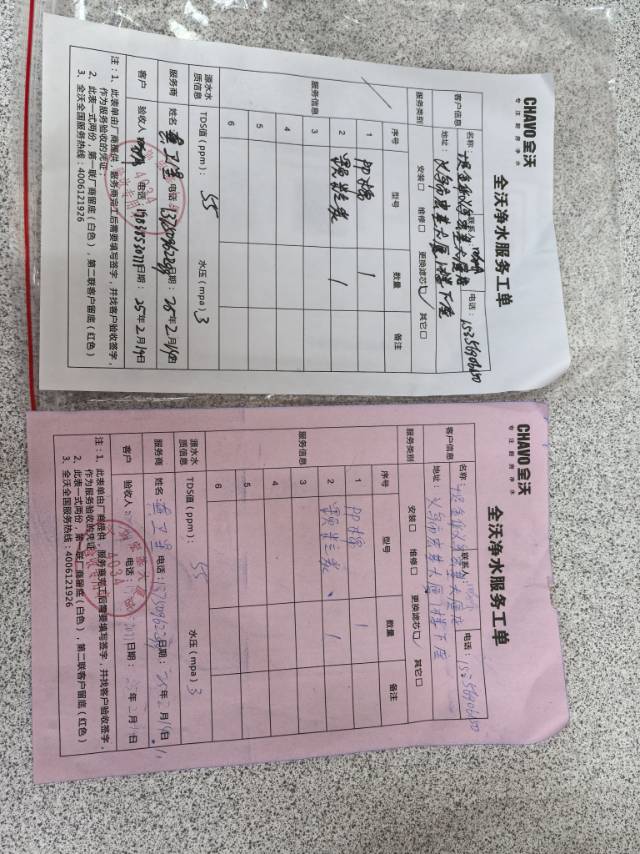 CHAVO 全沃
专注厨房净水
全沃净水服务工单
客户信息
名称:
联系人
电话:
地址: 义乌
服务类别
安装□ 维修□ 更换滤芯□✓ 其它□
服务信息
序号 型号 数量 备注
1 PP棉 1
2 颗粒炭 1
3
4
5
6
源水水质信息
TDS值(ppm): 55 水压(mpa) 3
服务商
姓名 电话: 日期: 25年2月19日
客户
验收人 电话: 日期: 25年2月19日
注:1、此表单由厂商提供,服务商完工后需要填写签字,并找客户验收签字,
作为服务验收的凭证;
2、此表一式两份,第一联厂商留底(白色),第二联客户留底(红色)
3、全沃全国服务热线:4006121926
CHAVO 全沃
专注厨房净水
全沃净水服务工单
客户信息
名称:
联系人
电话:
地址: 义乌
服务类别
安装□ 维修□ 更换滤芯□✓ 其它□
服务信息
序号 型号 数量 备注
1 PP棉 1
2 颗粒炭 1
3
4
5
6
源水水质信息
TDS值(ppm): 55 水压(mpa) 3
服务商
姓名 电话: 日期: 25年2月19日
客户
验收人 电话: 日期: 年2月 日
注:1、此表单由厂商提供,服务商完工后需要填写签字,并找客户验收签字,
作为服务验收的凭证;
2、此表一式两份,第一联厂商留底(白色),第二联客户留底(红色)
3、全沃全国服务热线:4006121926